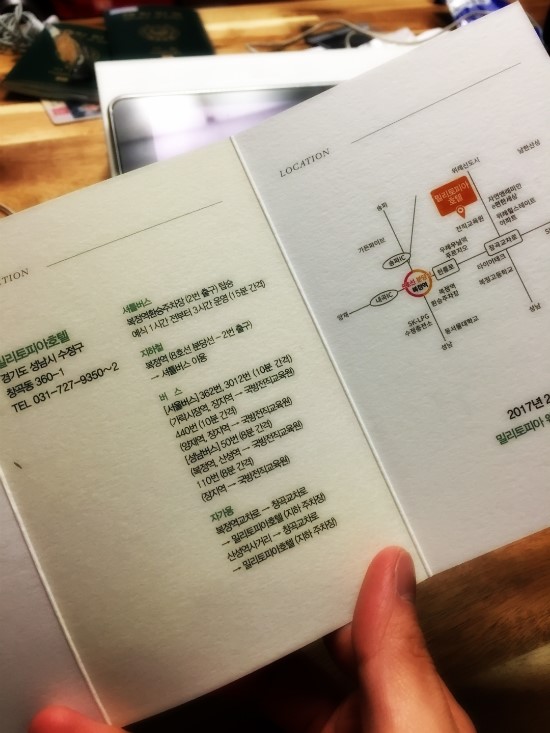 TION
밀리토피아호텔
경기도 성남시 수정구
창곡동 360-1
TEL 031-727-9350~2
셔틀버스
복정역환승주차장 (2번 출구) 탑승
예식 1시간 전부터 3시간 운영 (15분 간격)
지하철
복정역 (8호선 분당선 - 2번 출구)
→ 셔틀버스 이용
버 스
[서울버스] 362번, 3012번 (10분 간격)
(가락시장역, 장지역 → 국방전직교육원)
440번 (10분 간격)
(양재역, 장지역 → 국방전직교육원)
[성남버스] 50번 (6분 간격)
(복정역, 산성역 → 국방전직교육원)
110번 (8분 간격)
(장지역 → 국방전직교육원)
자가용
복정역교차로 → 창곡교차로
→ 밀리토피아호텔 (지하 주차장)
산성역사거리 → 창곡교차로
→ 밀리토피아호텔 (지하 주차장)
LOCATION
남한산성
위례신도시
밀리토피아
호텔
송파
자연앤래미안
e편한세상
위례힐스테이트
아파트
전직교육원
가든파이브
송파IC
우례유남역
푸르지오
창곡교차로
진틀로
타이어테크
복정고등학교
복정역
내곡IC
복정역
환승주차장
양재
SK-LPG
수정충전소
동서울대학교
성남
성남
2017년 2
밀리토피아